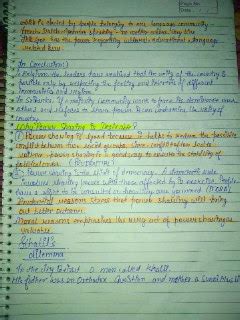 elected by people belonging to one language community
French, Dutch, German speaking - no matter where they live
This Gov. has the power regarding cultural, educational & language
related issue
In Conclusion:
In Belgium, the leaders have realised that the unity of the country is
possible only by respecting the feelings and interests of different
communities and regions
In Sri Lanka, if a majority community wants to force its dominance over
others and refuses to share power, it can undermine the unity of
country
Why Power Sharing is Desirable?
Power sharing is good because it helps to reduce the possible
conflict between the social groups. Since conflict often leads to
violence, power sharing is a good way to ensure the stability of
political order. (Prudential)
Power sharing is the spirit of democracy. A democratic rule
involves sharing power with those affected by its exercise. People
have a right to be consulted on how they are governed. (Moral)
Prudential reasons stress that power sharing will bring
out better outcomes
Moral reasons emphasises the very act of power sharing as
valuable
Khalil's
dilemma
In the city Beirut a man called Khalil
His father was an Orthodox Christian and mother a Sunni Muslim